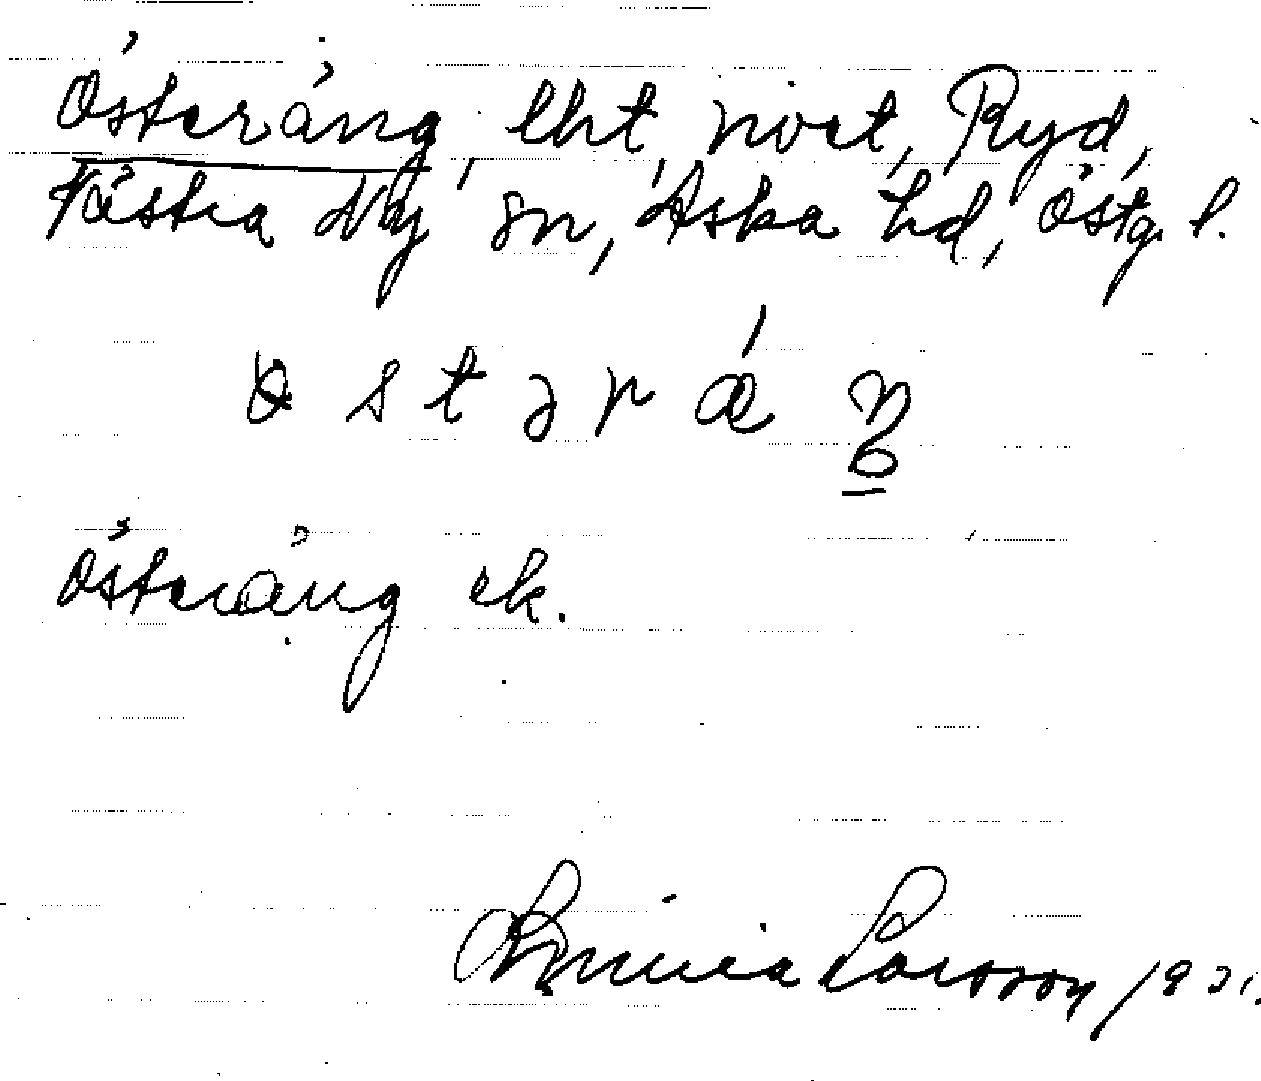 Österäng, lht, rivet, Ryd,
Västra Ny sn, Aska hd, Östg. l.
ø s t ə r ǽ ŋ
Österäng ek.
Linnéa Larsson 1931.